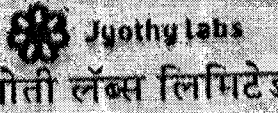 Jyothy Labs
ज्योती लॅब्स लिमिटेड